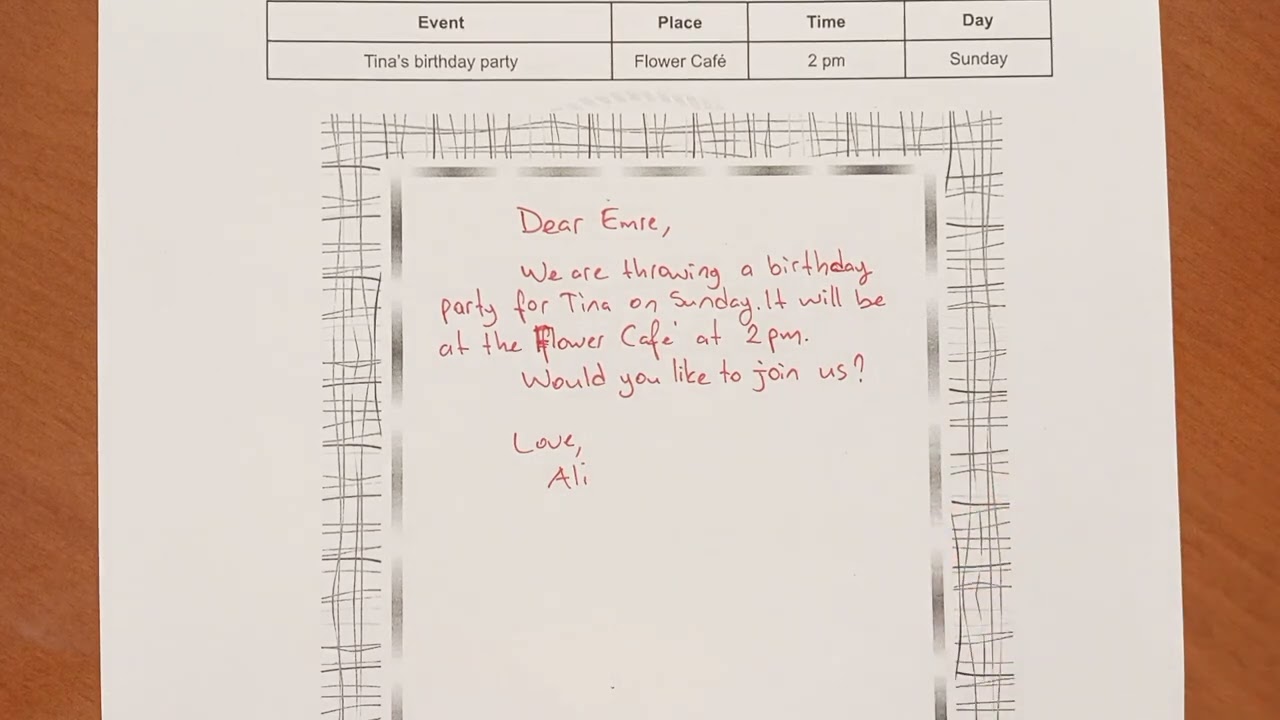 Event Place Time Day
Tina's birthday party Flower Café 2 pm Sunday
Dear Emre,
We are throwing a birthday
party for Tina on Sunday. It will be
at the Flower Café at 2 pm.
Would you like to join us?
Love,
Ali